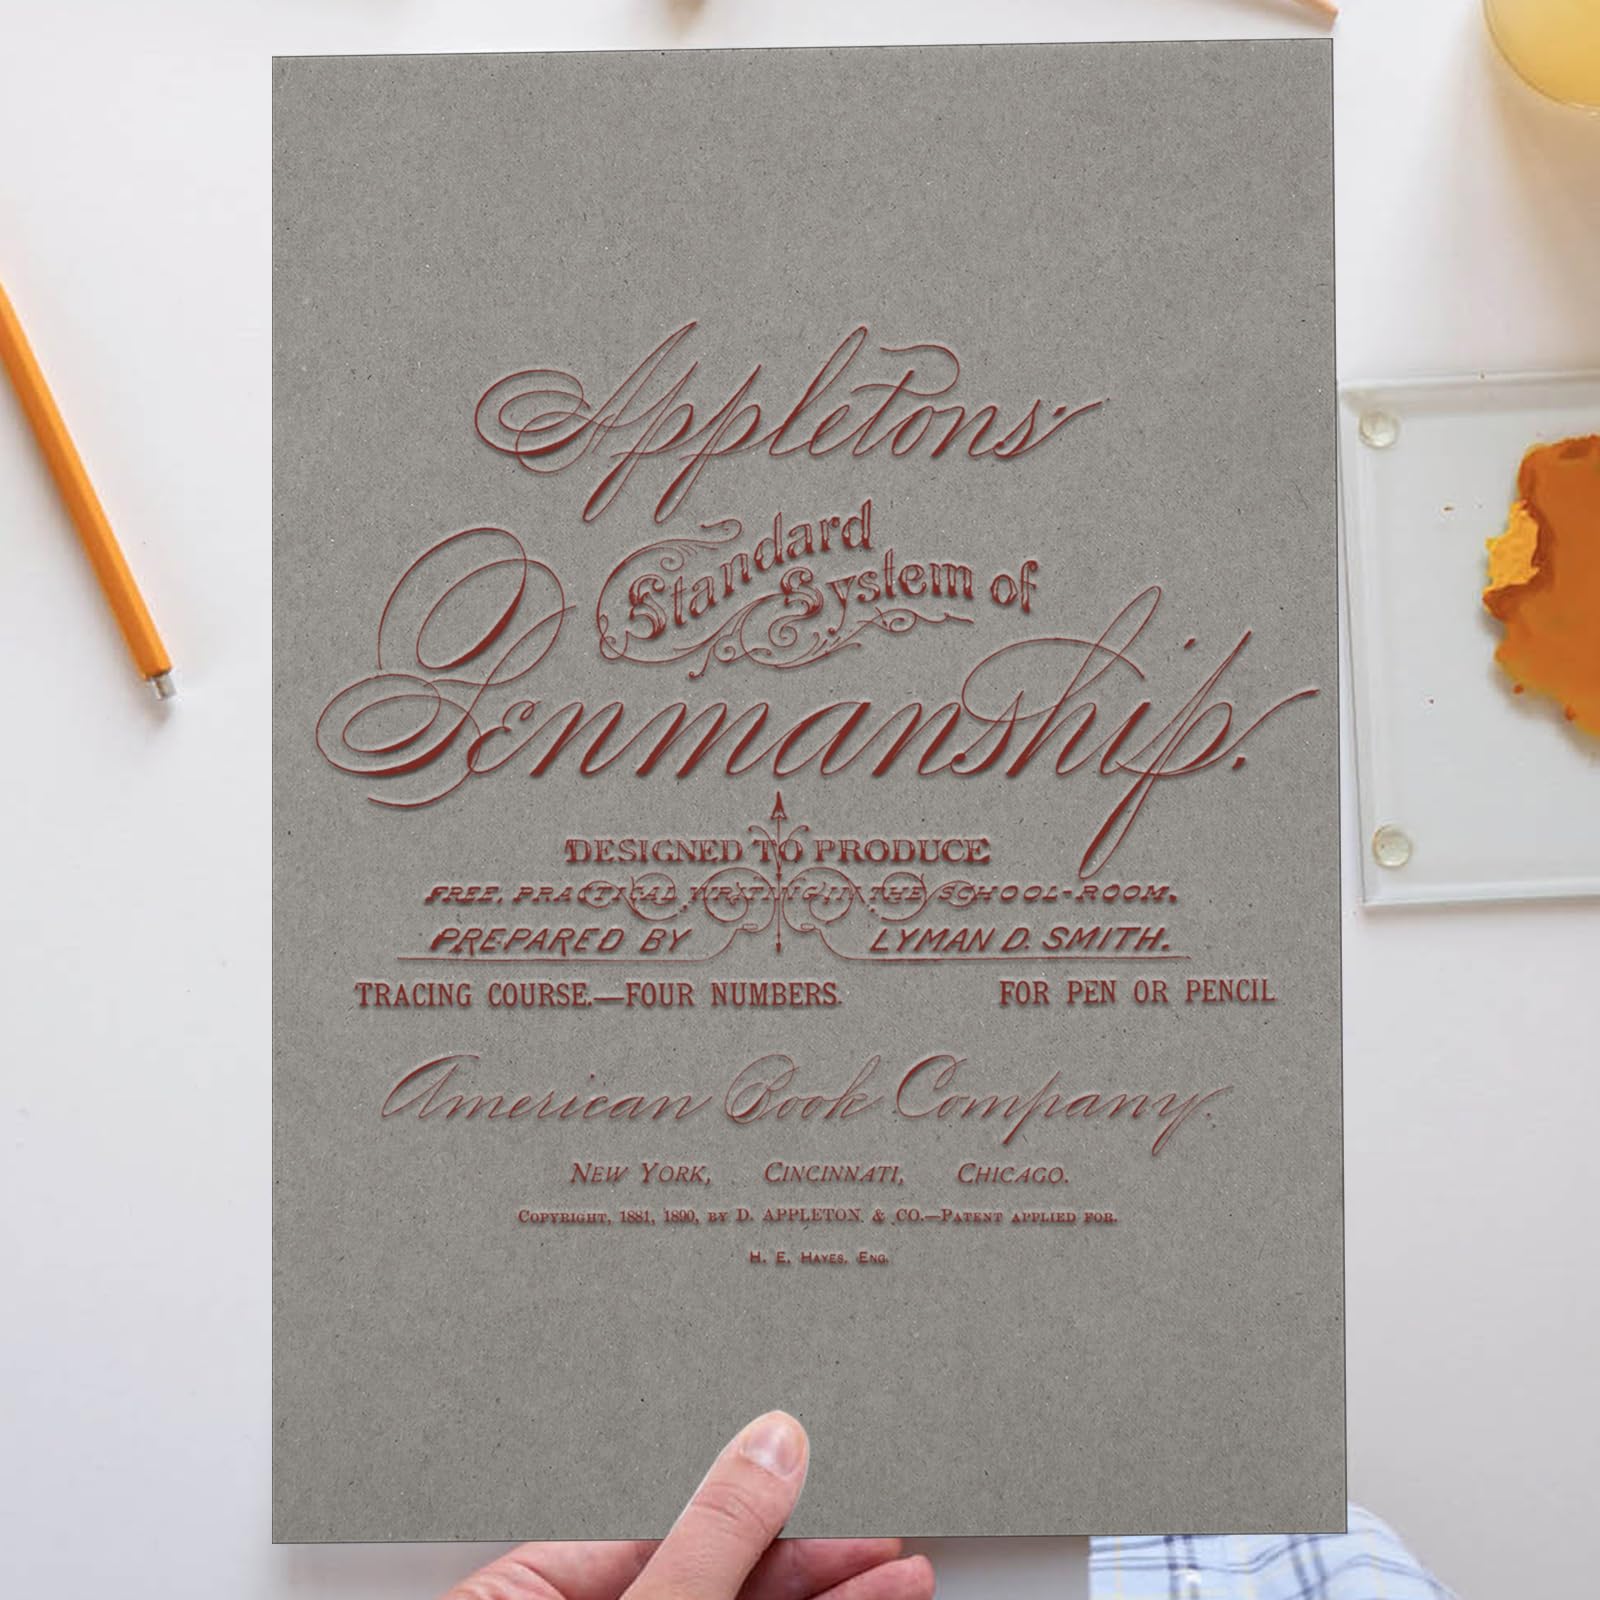 Appletons'
Standard
System of
Penmanship.
DESIGNED TO PRODUCE
FREE, PRACTICAL WRITING IN THE SCHOOL-ROOM.
PREPARED BY LYMAN D. SMITH.
TRACING COURSE.—FOUR NUMBERS. FOR PEN OR PENCIL
American Book Company.
NEW YORK, CINCINNATI, CHICAGO.
COPYRIGHT, 1881, 1890, BY D. APPLETON & CO.—PATENT APPLIED FOR.
H. E. HAYES, ENG.